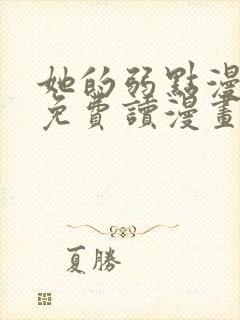 她的弱點漫
免費讀漫畫
夏勝